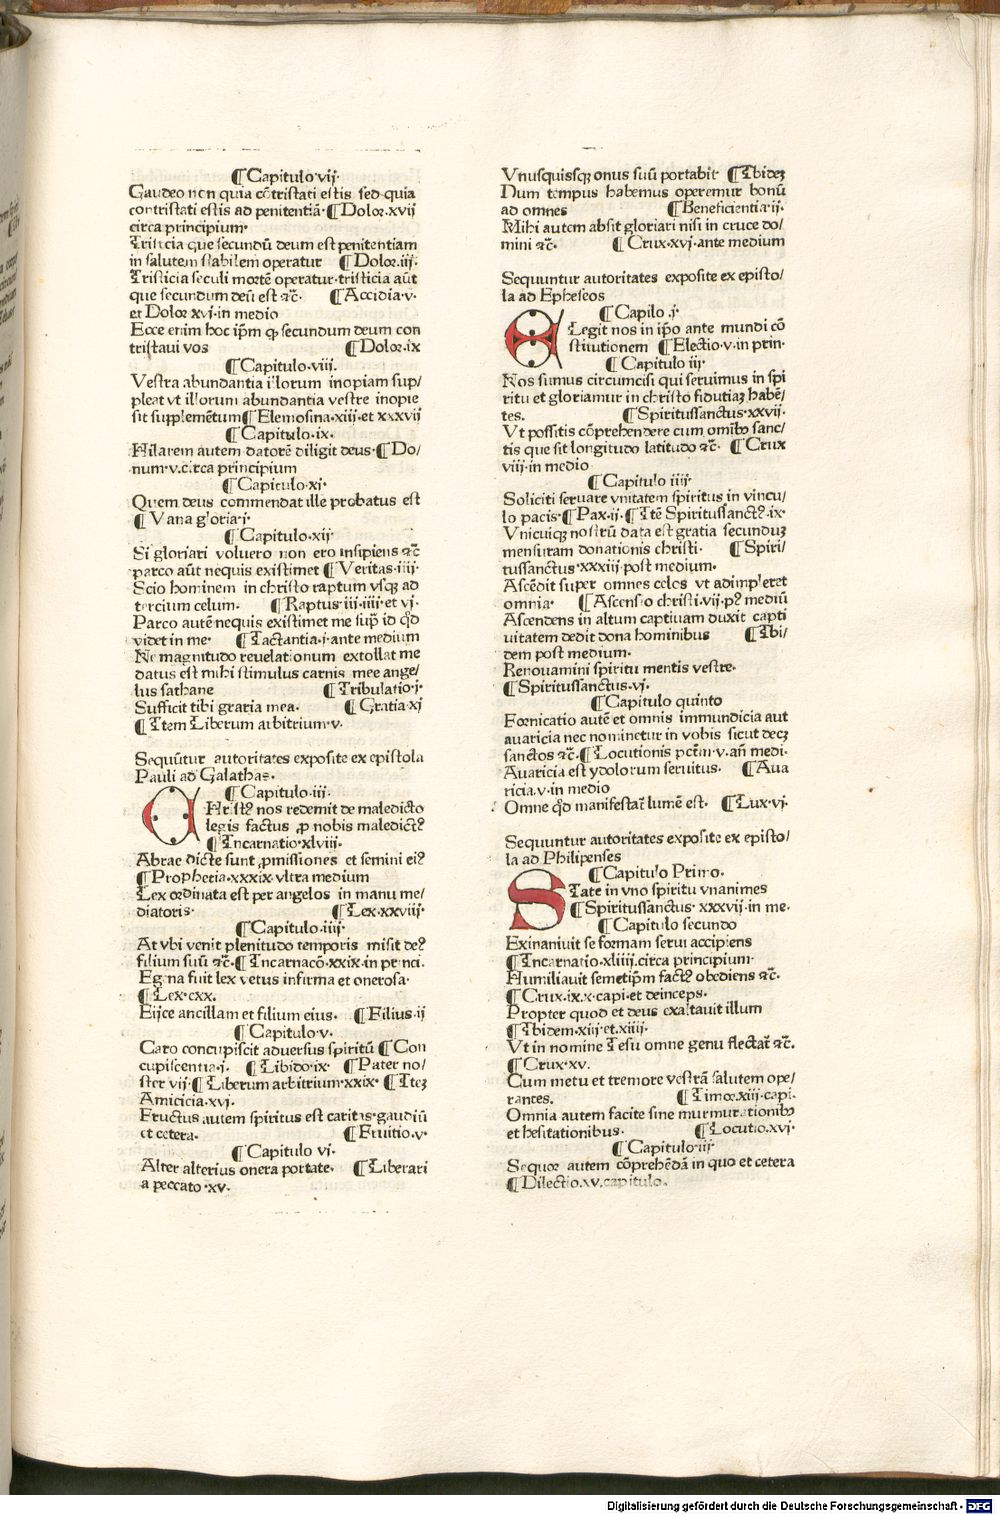 ¶Capitulo·vij·
Gaudeo non quia cōtristati estis sed quia
contristati estis ad penitentiā·¶Dolor·xvij
circa principium·
Tristicia que secundū deum est penitentiam
in salutem stabilem operatur ¶Dolor·iij·
Tristicia seculi mortē operatur·tristicia aūt
que secundum deū est ⁊c̄· ¶Accidia·v·
et Dolor xvj·in medio
Ecce enim hoc ip̄m ꝙ secundum deum con
tristaui vos ¶Dolor·ix
¶Capitulo·viij·
Vestra abundantia illorum inopiam sup/
pleat vt illorum abundantia vestre inopie
sit supplemētum¶Elemosina·xiij·et xxxvij
¶Capitulo·ix·
Hilarem autem datorē diligit deus·¶Do/
num·v·circa principium
¶Capitulo·xj·
Quem deus commendat ille probatus est
¶Vana gloria·j·
¶Capitulo·xij·
Si gloriari voluero non ero insipiens ⁊c̄
parco aūt nequis existimet ¶Veritas·iiij·
Scio hominem in christo raptum vsqꝫ ad
tercium celum· ¶Raptus·iij·iiij·et vj·
Parco autē nequis existimet me sup̄ id qd̄
videt in me· ¶Iactantia·j·ante medium
Ne magnitudo reuelationum extollat me
datus est mihi stimulus carnis mee ange/
lus sathane ¶Tribulatio·j·
Sufficit tibi gratia mea· ¶Gratia·xj
¶Item Liberum arbitrium·v·
Sequūtur autoritates exposite ex epistola
Pauli ad Galathas·
¶Capitulo·iij·
CHristꝰ nos redemit de maledicto
legis factus ꝓ nobis maledictꝰ
¶Incarnatio·xlviij·
Abrae dicte sunt ꝓmissiones et semini eiꝰ
¶Prophetia·xxxix·vltra medium
Lex ordinata est per angelos in manu me/
diatoris· ¶Lex·xxviij·
¶Capitulo·iiij·
At vbi venit plenitudo temporis misit deꝰ
filium suū ⁊c̄·¶Incarnacō·xxix·in princi·
Egena fuit lex vetus infirma et onerosa·
¶Lex·cxx·
Eijce ancillam et filium eius· ¶Filius·ij
¶Capitulo·v·
Caro concupiscit aduersus spiritū ¶Con
cupiscentia·j· ¶Libido·ix· ¶Pater no/
ster vij·¶Liberum arbitrium·xxix· ¶Iteꝫ
Amicicia·xvj·
Fructus autem spiritus est caritas·gaudiū
et cetera· ¶Fruitio·v·
¶Capitulo vj·
Alter alterius onera portate· ¶Liberari
a peccato·xv·
Vnusquisqꝫ onus suū portabit ¶Ibideꝫ
Dum tempus habemus operemur bonū
ad omnes ¶Beneficientia·ij·
Mihi autem absit gloriari nisi in cruce do/
mini ⁊c̄· ¶Crux·xvj·ante medium
Sequuntur autoritates exposite ex episto/
la ad Ephescos
¶Capilo·j·
ELegit nos in ip̄o ante mundi cō
stitutionem ¶Electio·v·in prin·
¶Capitulo iij·
Nos sumus circumcisi qui seruimus in spi
ritu et gloriamur in christo fidutiaꝫ habē/
tes. ¶Spiritussanctus·xxvij·
Vt possitis cōprehendere cum omībꝰ sanc/
tis que sit longitudo latitudo ⁊c̄· ¶Crux
viij·in medio
¶Capitulo iiij·
Soliciti seruare vnitatem spiritus in vincu/
lo pacis·¶Pax·ij·¶Itē Spiritussanctꝰ·ix·
Vnicuiqꝫ nostrū data est gratia secunduꝫ
mensuram donationis christi· ¶Spiri/
tussanctus·xxxiij·post medium·
Ascēdit super omnes celos vt adimpleret
omnia· ¶Ascensio christi·vij·pꝰ mediū
Ascendens in altum captiuam duxit capti
uitatem dedit dona hominibus ¶Ibi/
dem post medium·
Renouamini spiritu mentis vestre·
¶Spiritussanctus·vj·
¶Capitulo quinto
Fornicatio autē et omnis immundicia aut
auaricia nec nominetur in vobis sicut decꝫ
sanctos ⁊c̄·¶Locutionis pctm̄·v·añ medi·
Auaricia est ydolorum seruitus· ¶Aua
ricia·v·in medio
Omne qd̄ manifestat̄ lumē est· ¶Lux·vj·
Sequuntur autoritates exposite ex episto/
la ad Philipenses
¶Capitulo Primo·
STate in vno spiritu vnanimes
¶Spiritussanctus·xxxvij·in me·
¶Capitulo secundo
Exinaniuit se formam serui accipiens
¶Incarnatio·xliiij·circa principium·
Humiliauit semetip̄m factꝰ obediens ⁊c̄·
¶Crux·ix·x·capi·et deinceps·
Propter quod et deus exaltauit illum
¶Ibidem·xiij·et·xiiij·
Vt in nomine Iesu omne genu flectat̄ ⁊c̄·
¶Crux·xv·
Cum metu et tremore vestrā salutem ope/
rantes· ¶Timor·xiij·capi·
Omnia autem facite sine murmurationibꝰ
et hesitationibus· ¶Locutio·xvj·
¶Capitulo·iij·
Sequor autem cōprehēdā in quo et cetera
¶Dilectio·xv·capitulo·
Digitalisierung gefördert durch die Deutsche Forschungsgemeinschaft - DFG